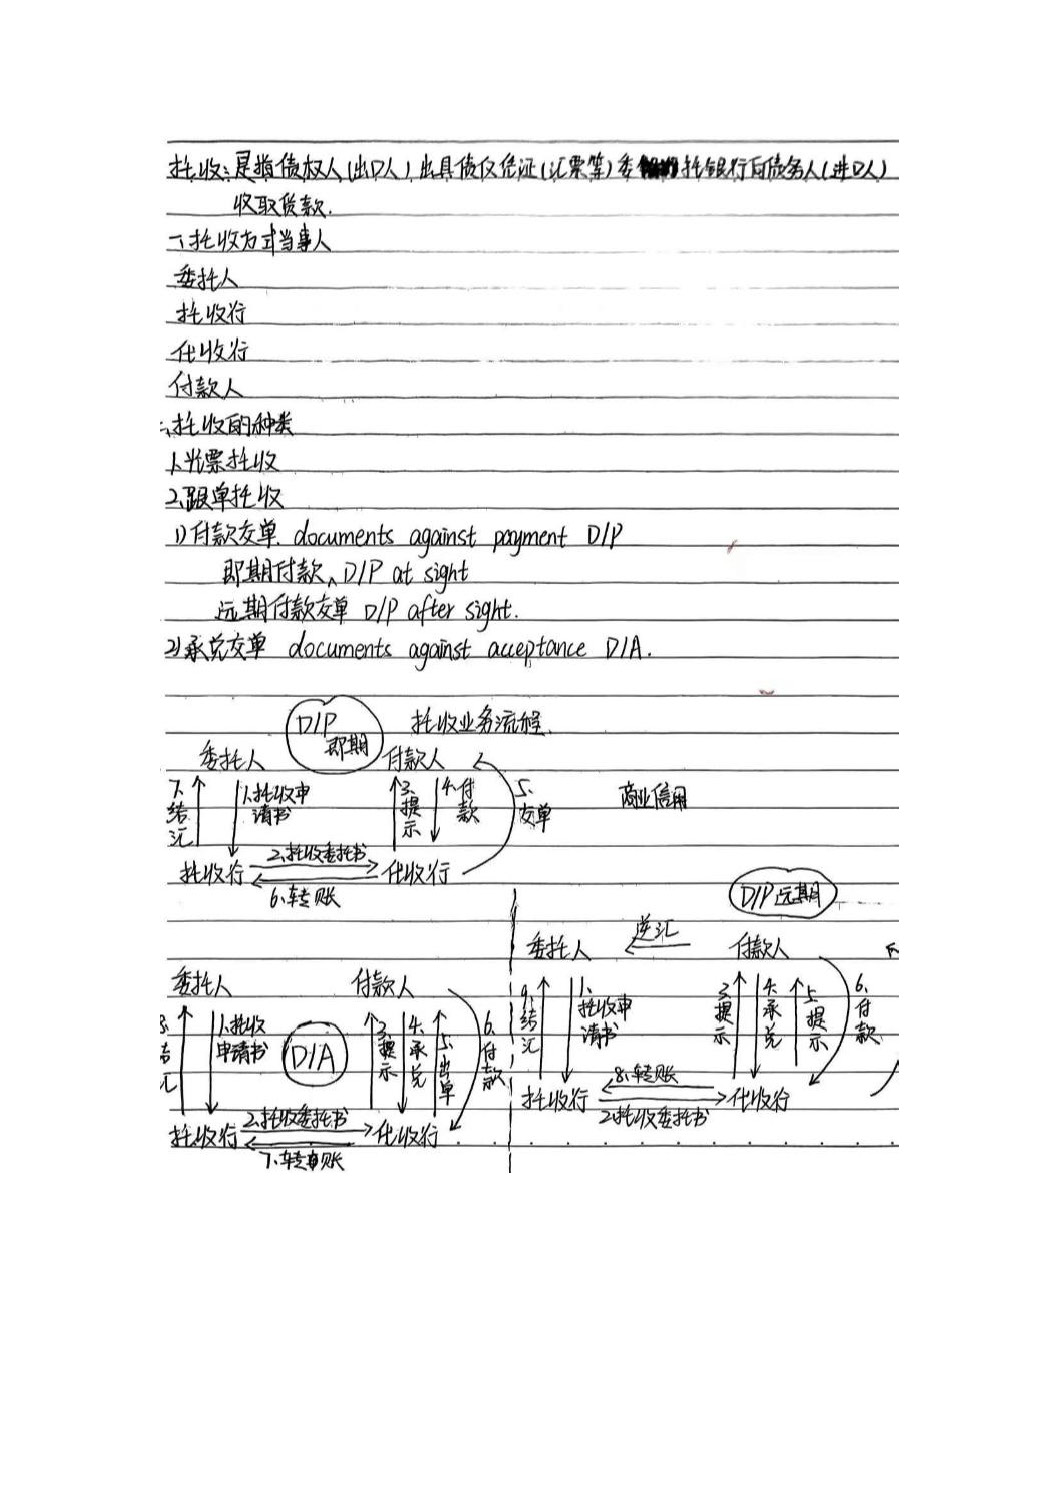 托收:是指债权人(出口人)出具债仅凭证(汇票等)委托银行向债务人(进口人)
收取货款.
一、托收方式当事人
委托人
托收行
代收行
付款人
二、托收的种类
1.光票托收
2.跟单托收
1)付款交单. documents against payment D/P
即期付款、D/P at sight
远期付款交单 D/P after sight.
2)承兑交单 documents against acceptance D/A.
D/P 即期
托收业务流程.
委托人
付款人
7.结汇
1.托收申请书
3.提示
4.付款
5.交单
商业信用
2.托收委托书
托收行
代收行
6.转账
D/P远期
委托人
逆汇
付款人
9.结汇
1.托收申请书
3.提示
4.承兑
5.提示
6.付款
8.转账
托收行
代收行
2.托收委托书
委托人
付款人
8.结汇
1.托收申请书
D/A
3.提示
4.承兑
5.出单
6.付款
2.托收委托书
托收行
代收行
7.转账